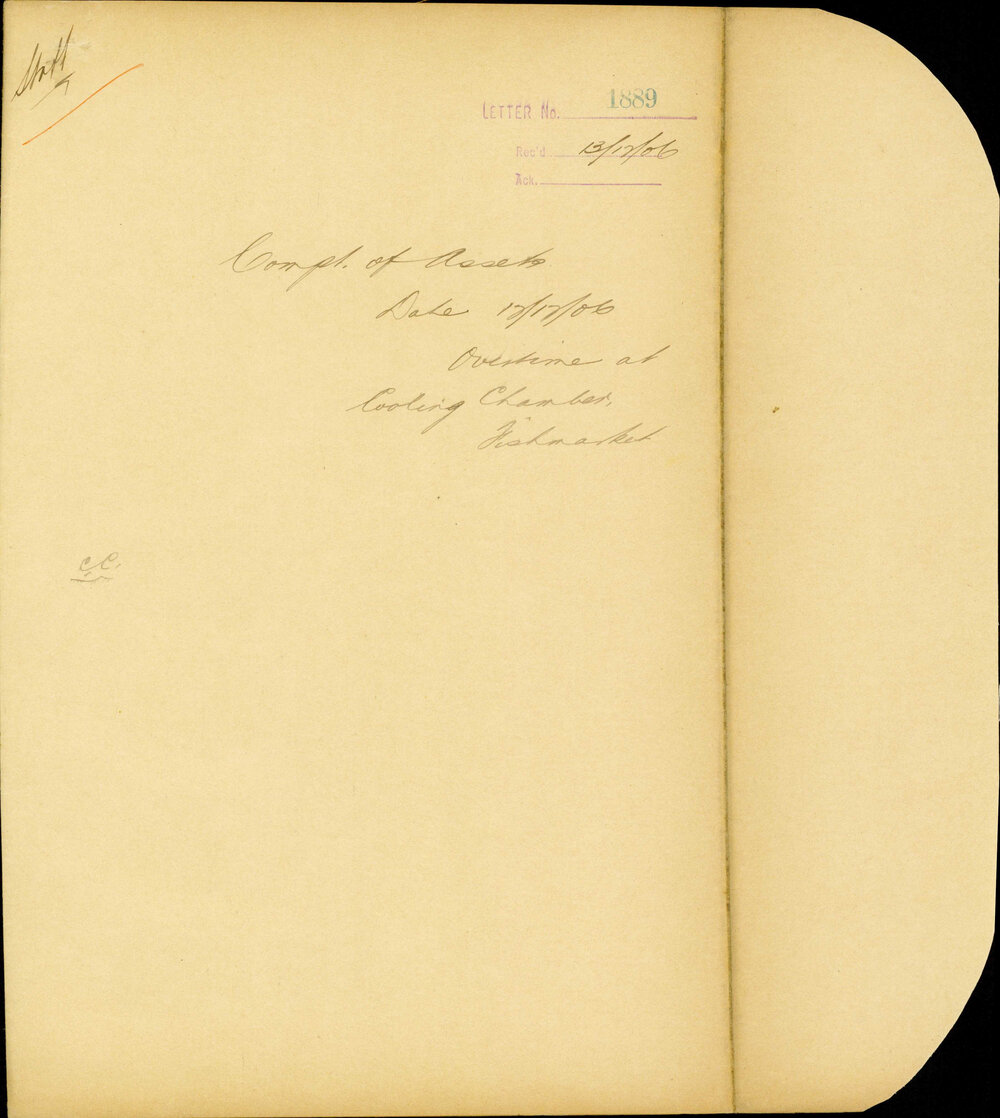 Staff
LETTER No. 1889
Rec'd 13/12/06
Ack.
Compt. of Assets
Date 12/12/06
Overtime at
Cooling Chamber,
Fishmarket
C.C.